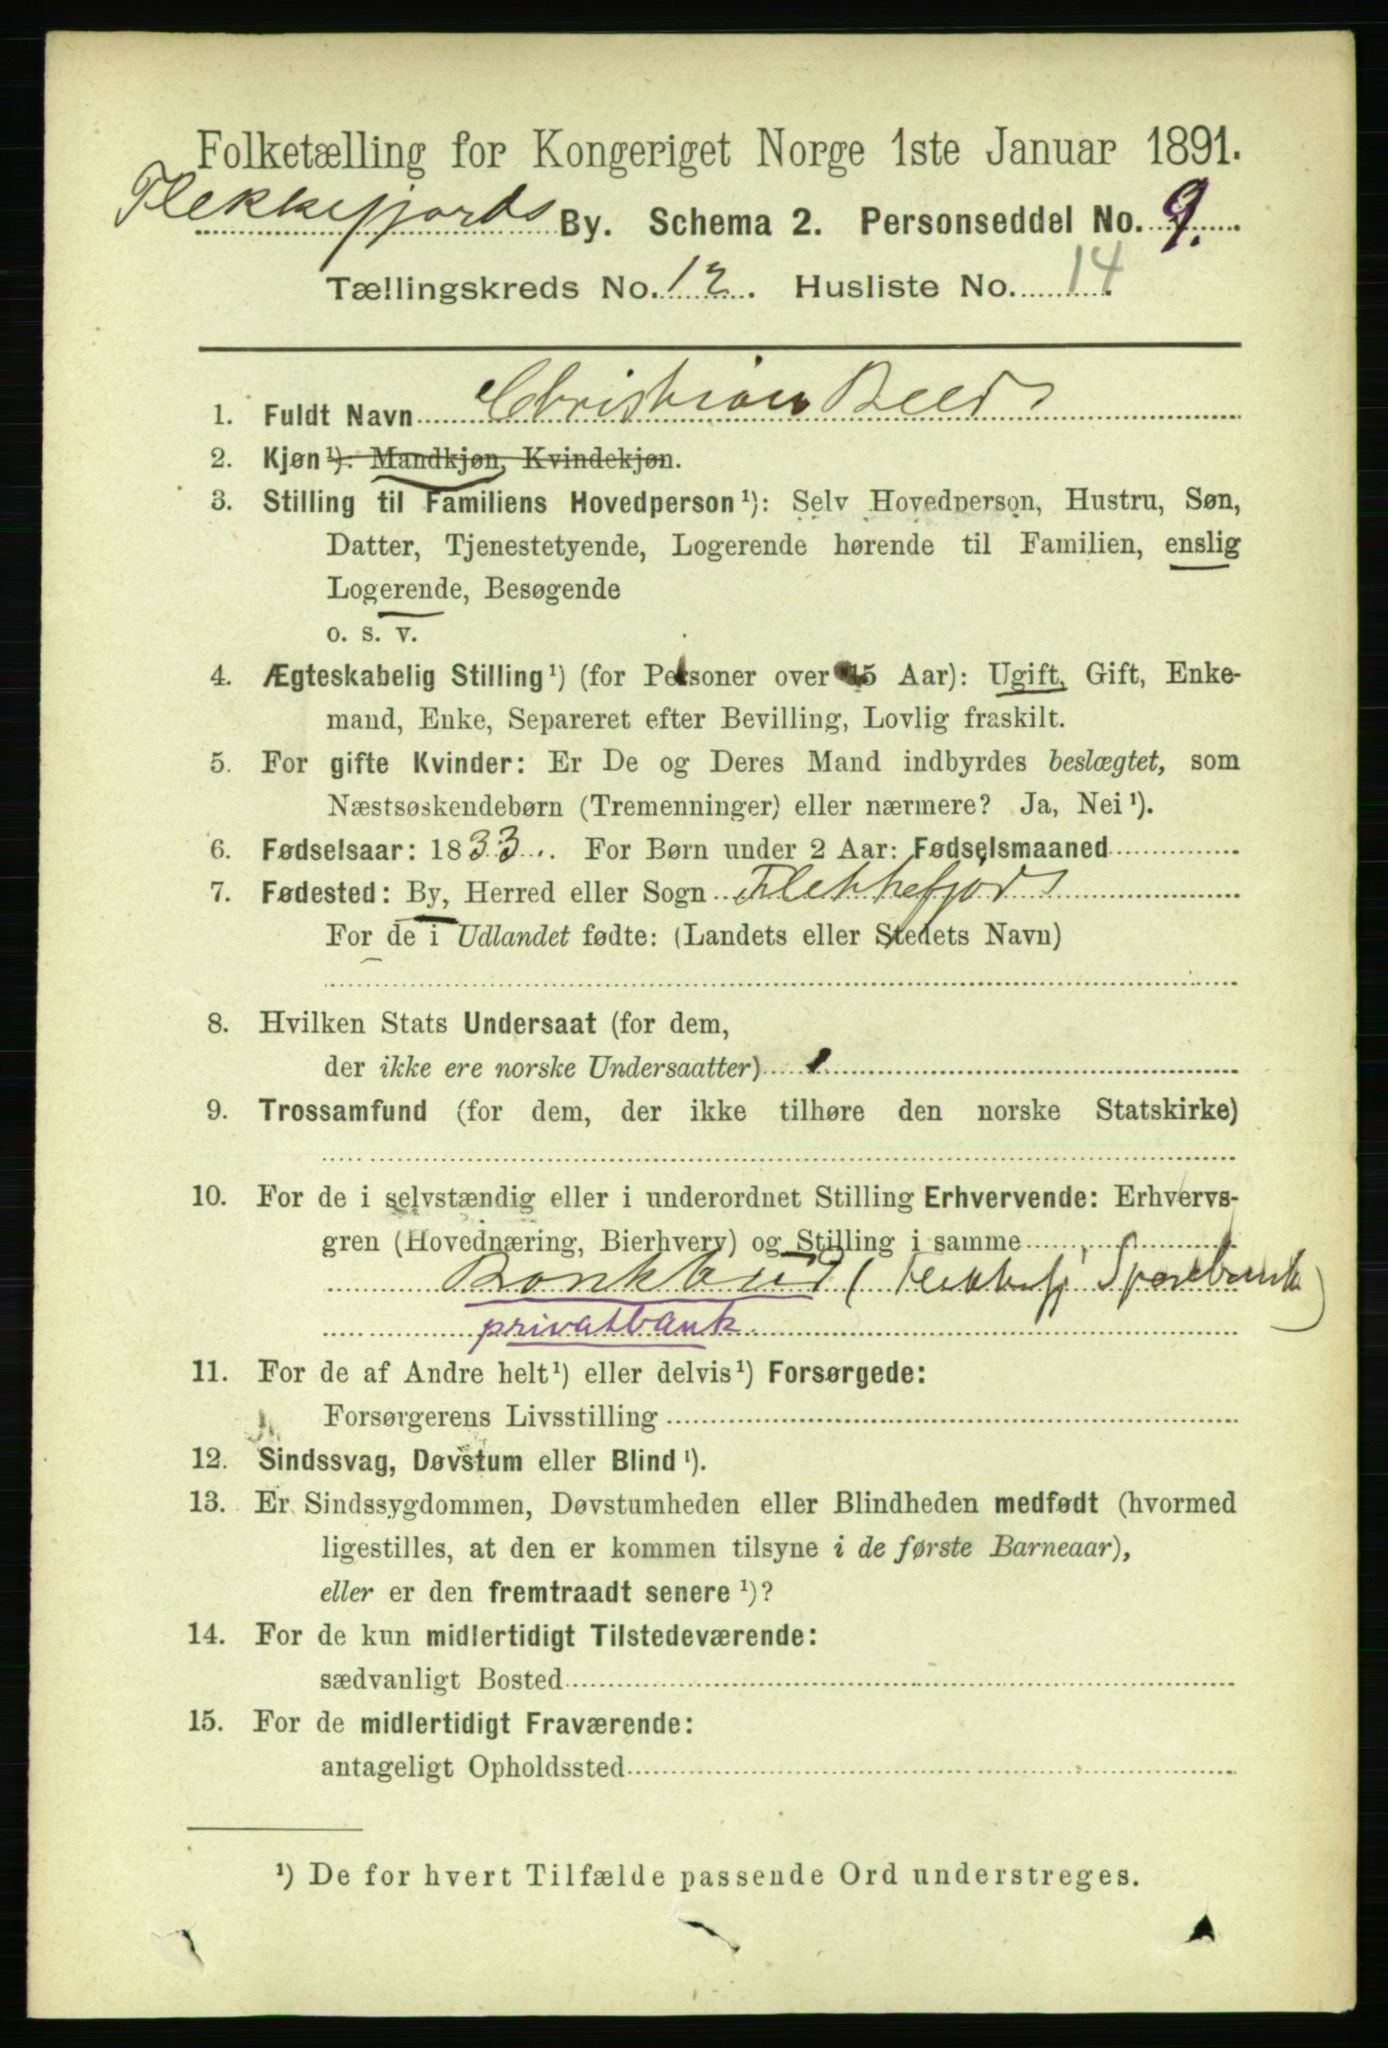 Folketælling for Kongeriget Norge 1ste Januar 1891.
Flekkefjords By. Schema 2. Personseddel No. 9.
Tællingskreds No. 12. Husliste No. 14
1. Fuldt Navn Christian Beer
2. Kjøn¹): Mandkjøn, Kvindekjøn.
3. Stilling til Familiens Hovedperson¹): Selv Hovedperson, Hustru, Søn,
Datter, Tjenestetyende, Logerende hørende til Familien, enslig
Logerende, Besøgende
o. s. v.
4. Ægteskabelig Stilling¹) (for Personer over 15 Aar): Ugift, Gift, Enke-
mand, Enke, Separeret efter Bevilling, Lovlig fraskilt.
5. For gifte Kvinder: Er De og Deres Mand indbyrdes beslægtet, som
Næstsøskendebørn (Tremenninger) eller nærmere? Ja, Nei¹).
6. Fødselsaar: 1833. For Børn under 2 Aar: Fødselsmaaned
7. Fødested: By, Herred eller Sogn Flekkefjord
For de i Udlandet fødte: (Landets eller Stedets Navn)
8. Hvilken Stats Undersaat (for dem,
der ikke ere norske Undersaatter)
9. Trossamfund (for dem, der ikke tilhøre den norske Statskirke)
10. For de i selvstændig eller i underordnet Stilling Erhvervende: Erhvervs-
gren (Hovednæring, Bierhverv) og Stilling i samme
Bankbud (Flekkefj Sparebank)
privatbank.
11. For de af Andre helt¹) eller delvis¹) Forsørgede:
Forsørgerens Livsstilling
12. Sindssvag, Døvstum eller Blind¹).
13. Er Sindssygdommen, Døvstumheden eller Blindheden medfødt (hvormed
ligestilles, at den er kommen tilsyne i de første Barneaar),
eller er den fremtraadt senere¹)?
14. For de kun midlertidigt Tilstedeværende:
sædvanligt Bosted
15. For de midlertidigt Fraværende:
antageligt Opholdssted
¹) De for hvert Tilfælde passende Ord understreges.